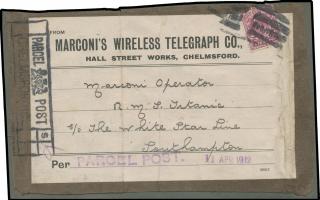 FROM
MARCONI'S WIRELESS TELEGRAPH CO.,
HALL STREET WORKS, CHELMSFORD.
PARCEL POST
Marconi Operator
R.M.S. Titanic
c/o The White Star Line
Southampton
Per PARCEL POST. APR 1912